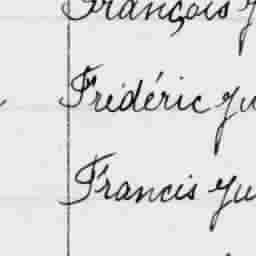 François
Frédéric
Francis